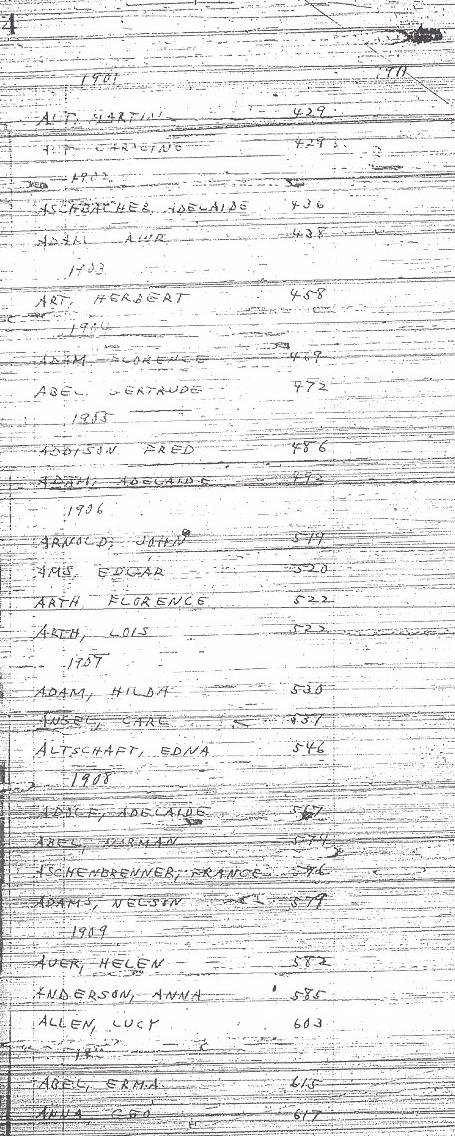 1901 1911
ALT, MARTIN 429
ALT CAROLINE 429
1902
ASCHBACHER, ADELAIDE 436
ADAM 438
1903
ART, HERBERT 458
1904
ADAM FLORENCE 469
ABEL GERTRUDE 472
1905
ADDISON FRED 486
ADAM, ADELAIDE 492
1906
ARNOLD, JOHN 519
AMS, EDGAR 520
ARTH FLORENCE 522
ARTH, LOIS 522
1907
ADAM, HILDA 530
ANGEL, CARL 537
ALTSCHAFT, EDNA 546
1908
ADOLF, ADELAIDE 567
ABEL, NORMAN 574
ASCHENBRENNER, FRANCE 576
ADAMS, NELSON 579
1909
AUER, HELEN 582
ANDERSON, ANNA 585
ALLEN, LUCY 603
ABEL, ERMA 615
ANNA, GEO 617